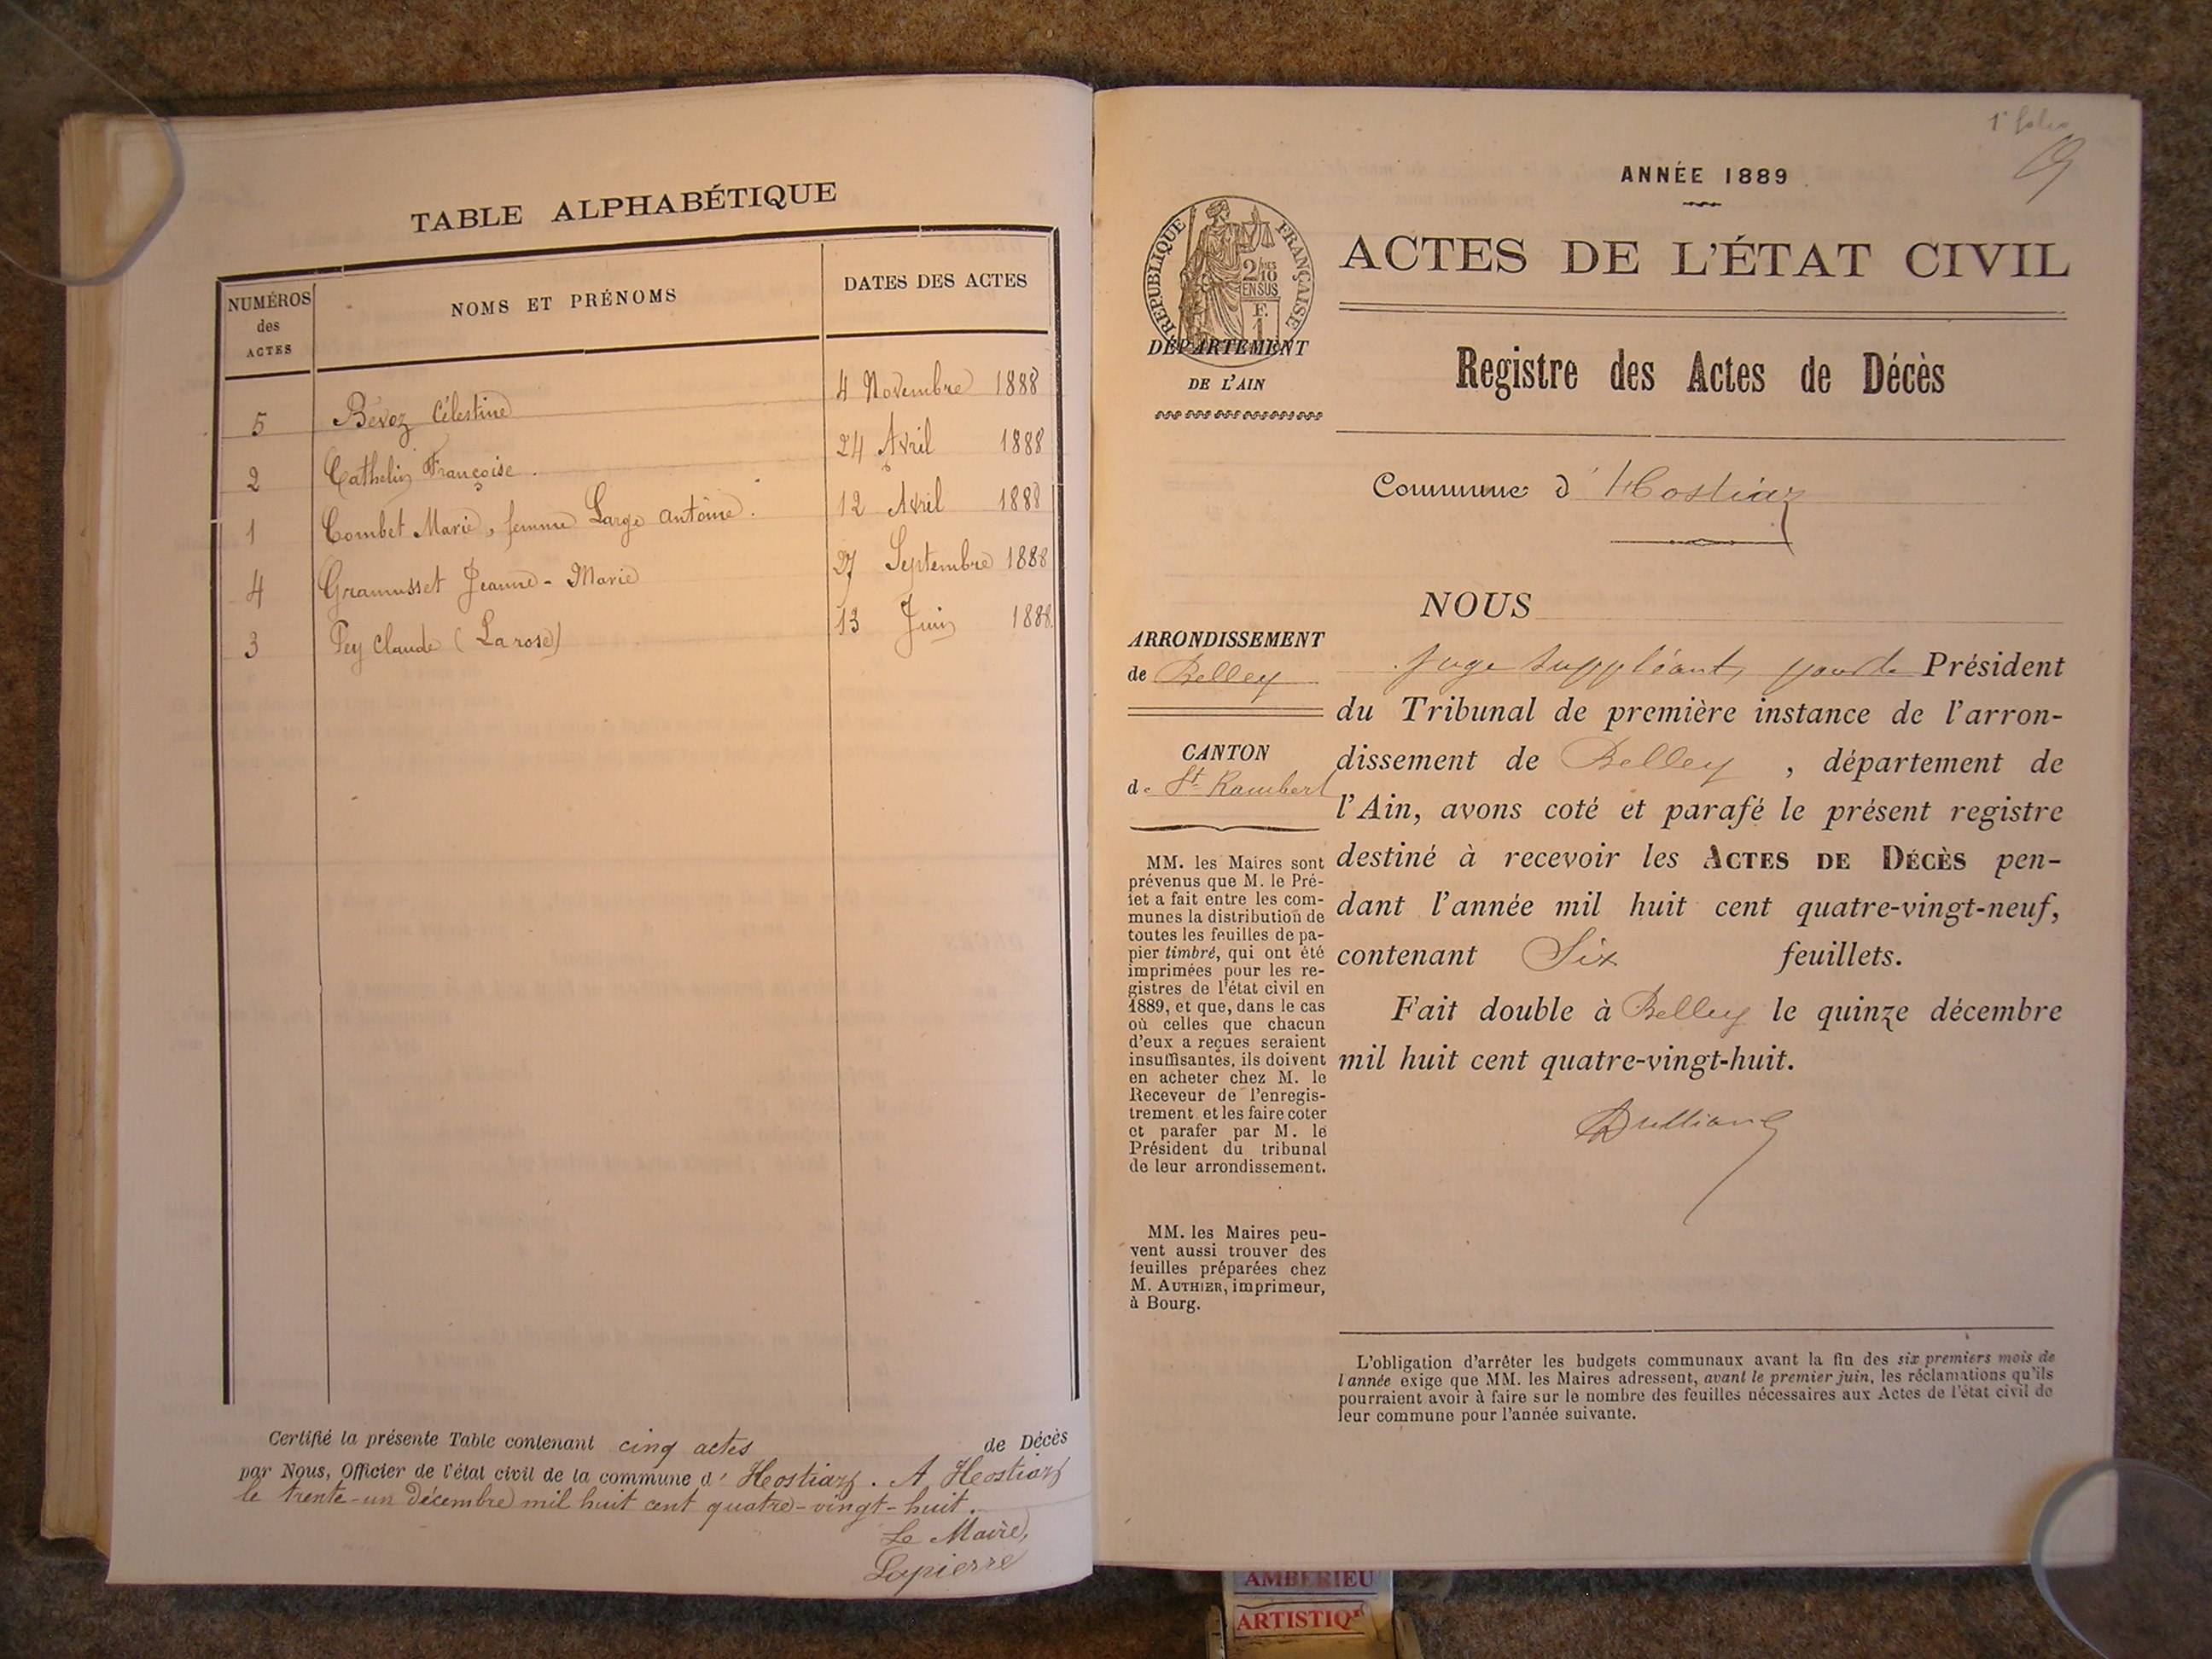 TABLE ALPHABÉTIQUE
NUMÉROS
des
ACTES
NOMS ET PRÉNOMS
DATES DES ACTES
5 Bévoz Célestine 4 Novembre 1888
2 Cathelin Françoise. 24 Avril 1888
1 Combet Marie, femme Large antoine. 12 Avril 1888
4 Gramusset Jeanne-Marie 27 Septembre 1888
3 Pey Claude (Larose) 13 Juin 1888
Certifié la présente Table contenant cinq actes de Décès
par Nous, Officier de l'état civil de la commune d' Hostiaz. A Hostiaz
le trente-un Décembre mil huit cent quatre-vingt-huit.
Le Maire,
Lapierre
1er folio
ANNÉE 1889
RÉPUBLIQUE FRANÇAISE
2/10
EN SUS
F.
1
ACTES DE L'ÉTAT CIVIL
DÉPARTEMENT
DE L'AIN
Registre des Actes de Décès
Commune d' Hostiaz
NOUS
ARRONDISSEMENT
de Belley
CANTON
de St Rambert
MM. les Maires sont
prévenus que M. le Pré-
fet a fait entre les com-
munes la distribution de
toutes les feuilles de pa-
pier timbré, qui ont été
imprimées pour les re-
gistres de l'état civil en
1889, et que, dans le cas
où celles que chacun
d'eux a reçues seraient
insuffisantes, ils doivent
en acheter chez M. le
Receveur de l'enregis-
trement et les faire coter
et parafer par M. le
Président du tribunal
de leur arrondissement.
MM. les Maires peu-
vent aussi trouver des
feuilles préparées chez
M. AUTHIER, imprimeur,
à Bourg.
Juge suppléant, pour le Président
du Tribunal de première instance de l'arron-
dissement de Belley, département de
l'Ain, avons coté et parafé le présent registre
destiné à recevoir les ACTES DE DÉCÈS pen-
dant l'année mil huit cent quatre-vingt-neuf,
contenant Six feuillets.
Fait double à Belley le quinze décembre
mil huit cent quatre-vingt-huit.
L'obligation d'arrêter les budgets communaux avant la fin des six premiers mois de
l'année exige que MM. les Maires adressent, avant le premier juin, les réclamations qu'ils
pourraient avoir à faire sur le nombre des feuilles nécessaires aux Actes de l'état civil de
leur commune pour l'année suivante.
AMBERIEU
ARTISTIQ